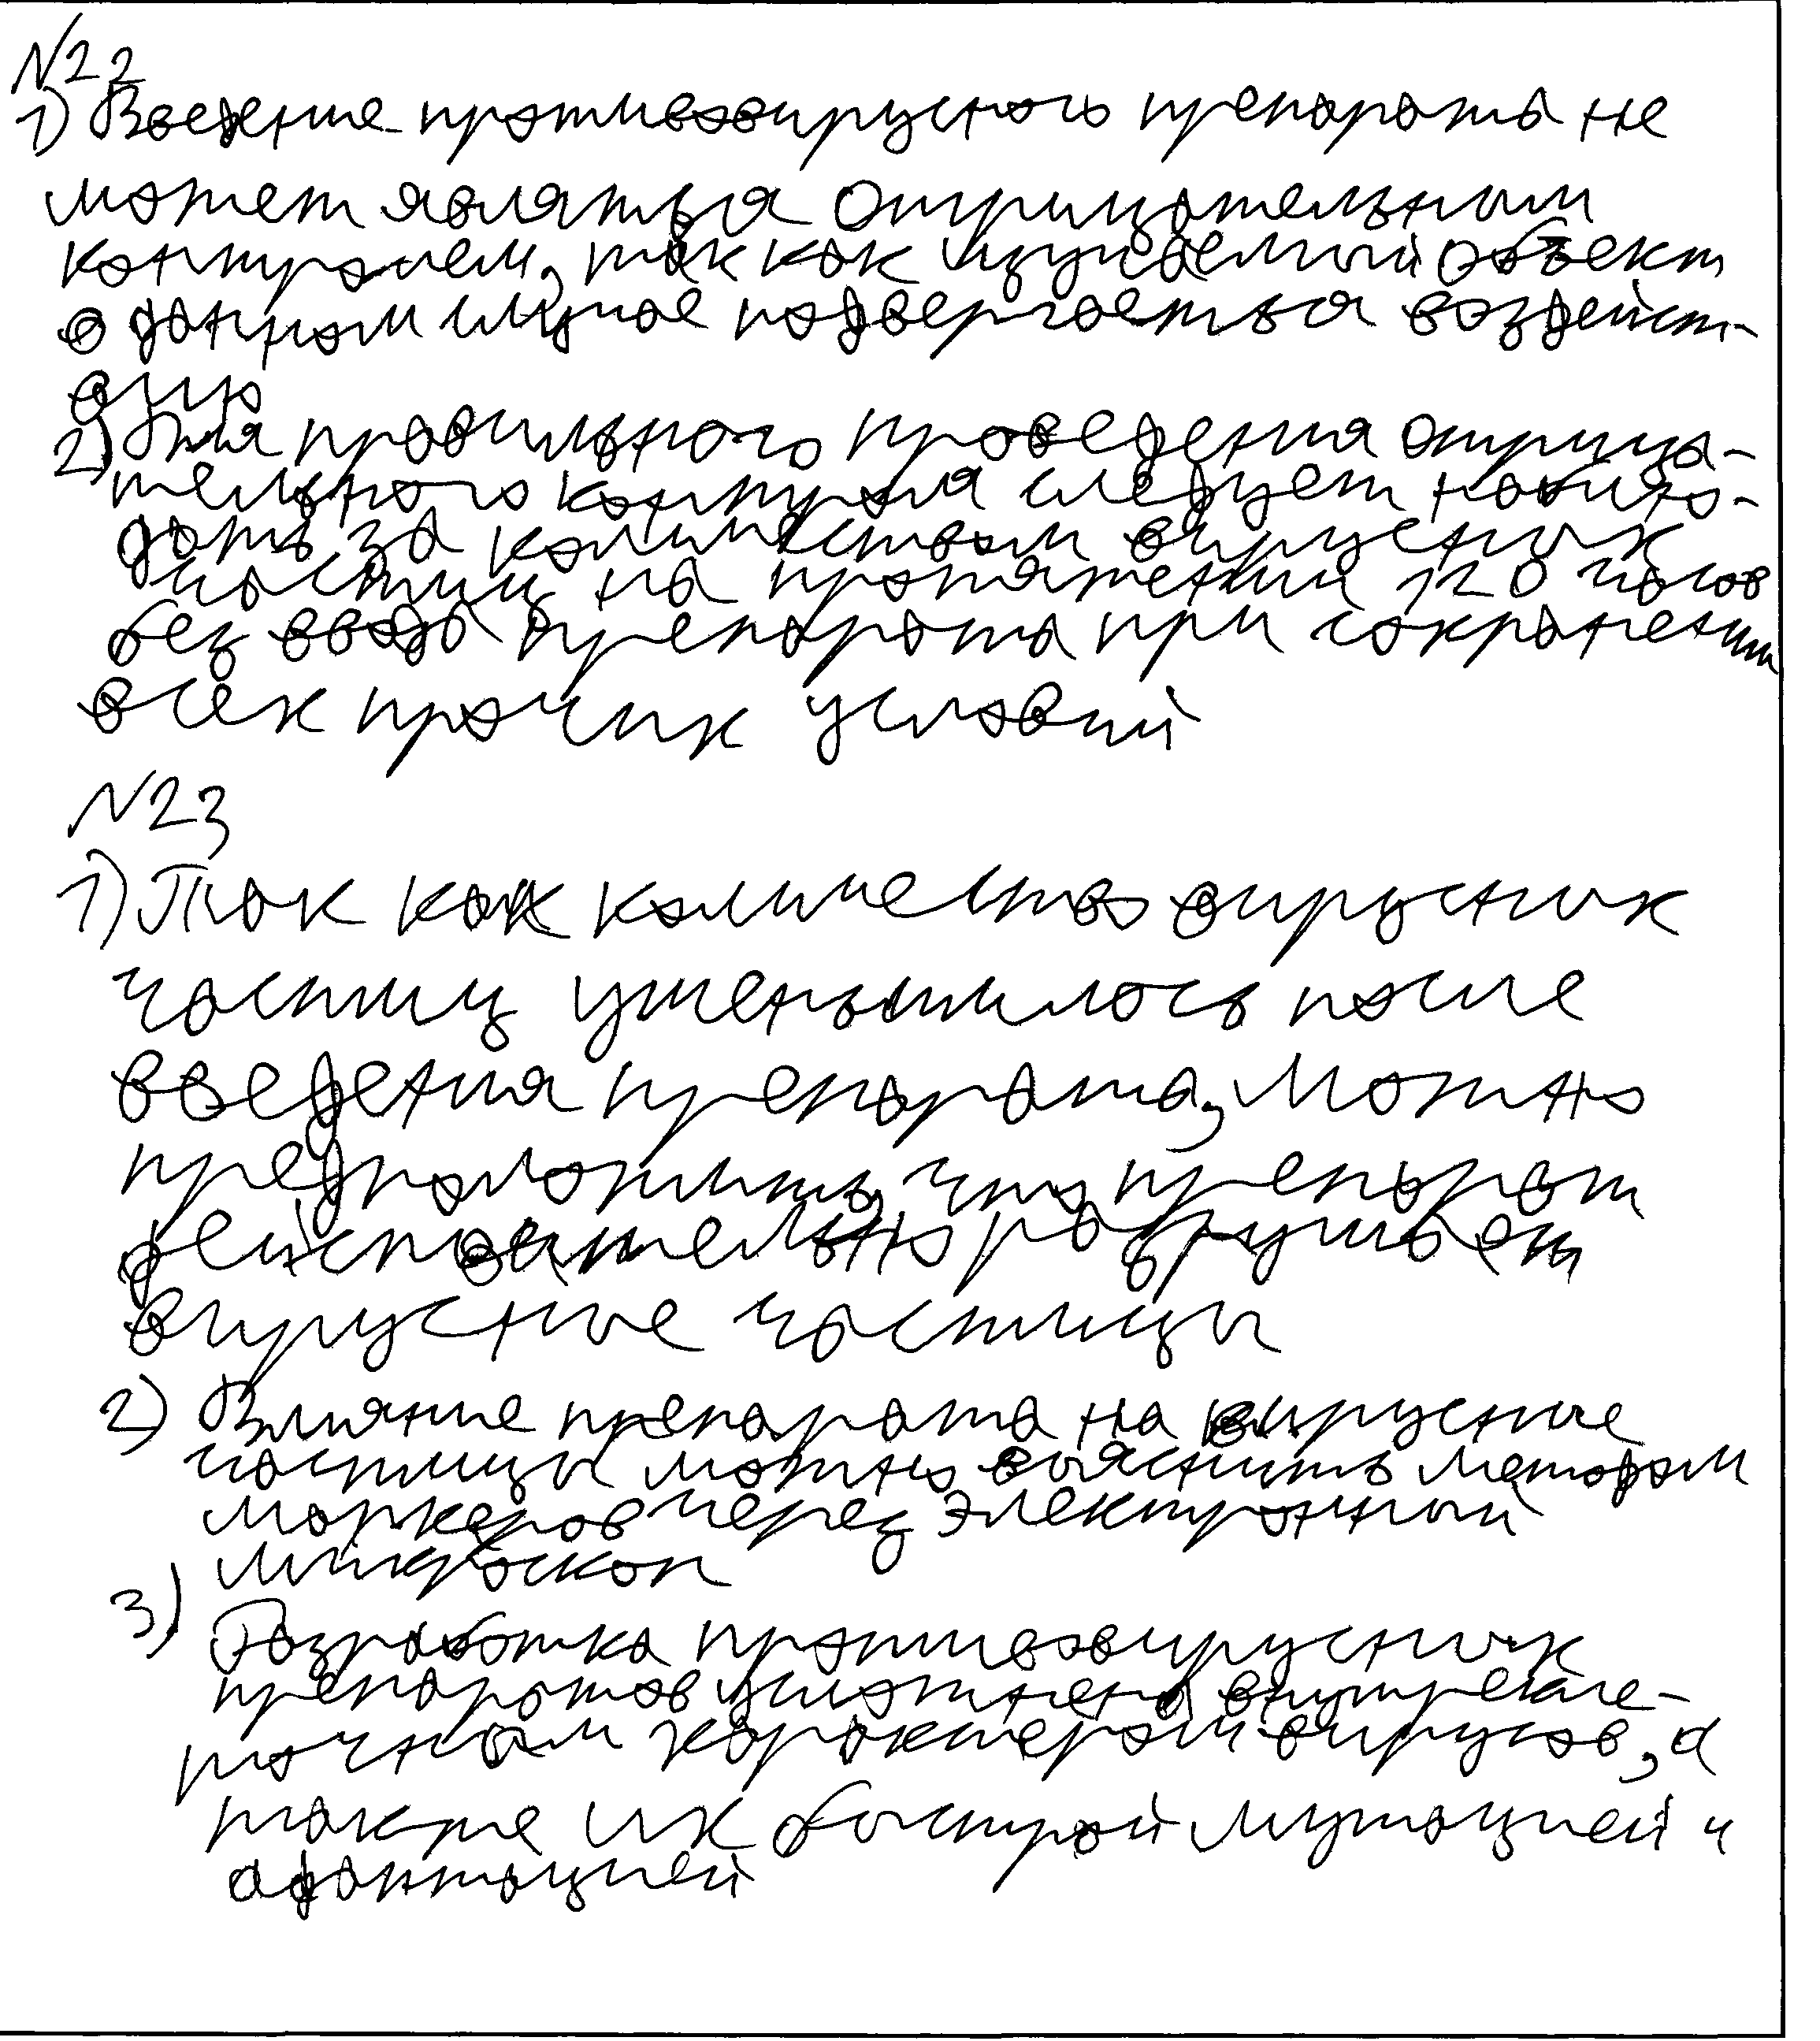 №22
1) Введение противовирусного препарата не
может являться отрицательным
контролем, так как изучаемый объект
в данном случае подвергается воздейст-
вию
2) Для правильного проведения отрица-
тельного контроля следует наблю-
дать за количеством вирусных
частиц на протяжении 120 часов
без ввода препарата при сохранении
всех прочих условий
№23
1) Так как количество вирусных
частиц уменьшилось после
введения препарата, можно
предположить, что препарат
действительно разрушает
вирусные частицы
2) Влияние препарата на вирусные
частицы можно выяснить методом
маркеров через электронный
микроскоп
3) Разработка противовирусных
препаратов усложнена внутрикле-
точным характером вирусов, а
также их быстрой мутацией и
адаптацией